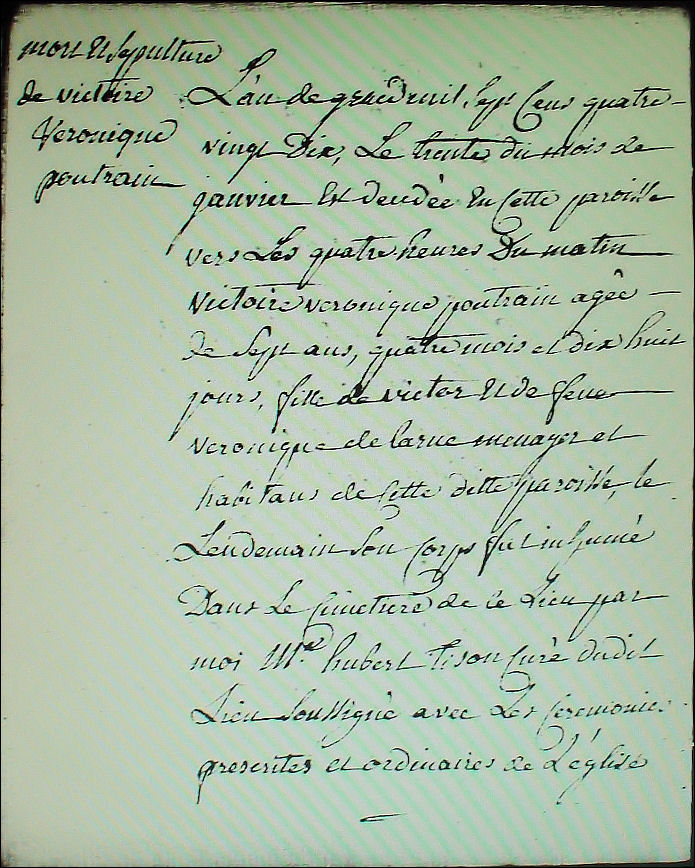 mort et sepulture
de victoire
Veronique
poutrain
L'an de grace mil sept cens quatre-
vingt Dix, Le trente du mois de
janvier Est decedée En cette paroisse
vers Les quatre heures Du matin
victoire veronique poutrain agée
de sept ans, quatre mois et dix huit
jours, fille de victor Et de feue
veronique de larue menager et
habitans de cette ditte paroisse, le
Lendemain son corps fut inhumé
Dans Le Cimetiere de ce Lieu par
moi Me hubert tison curé dudit
Lieu soussigné avec Les ceremonies
prescrites et ordinaires de L'église